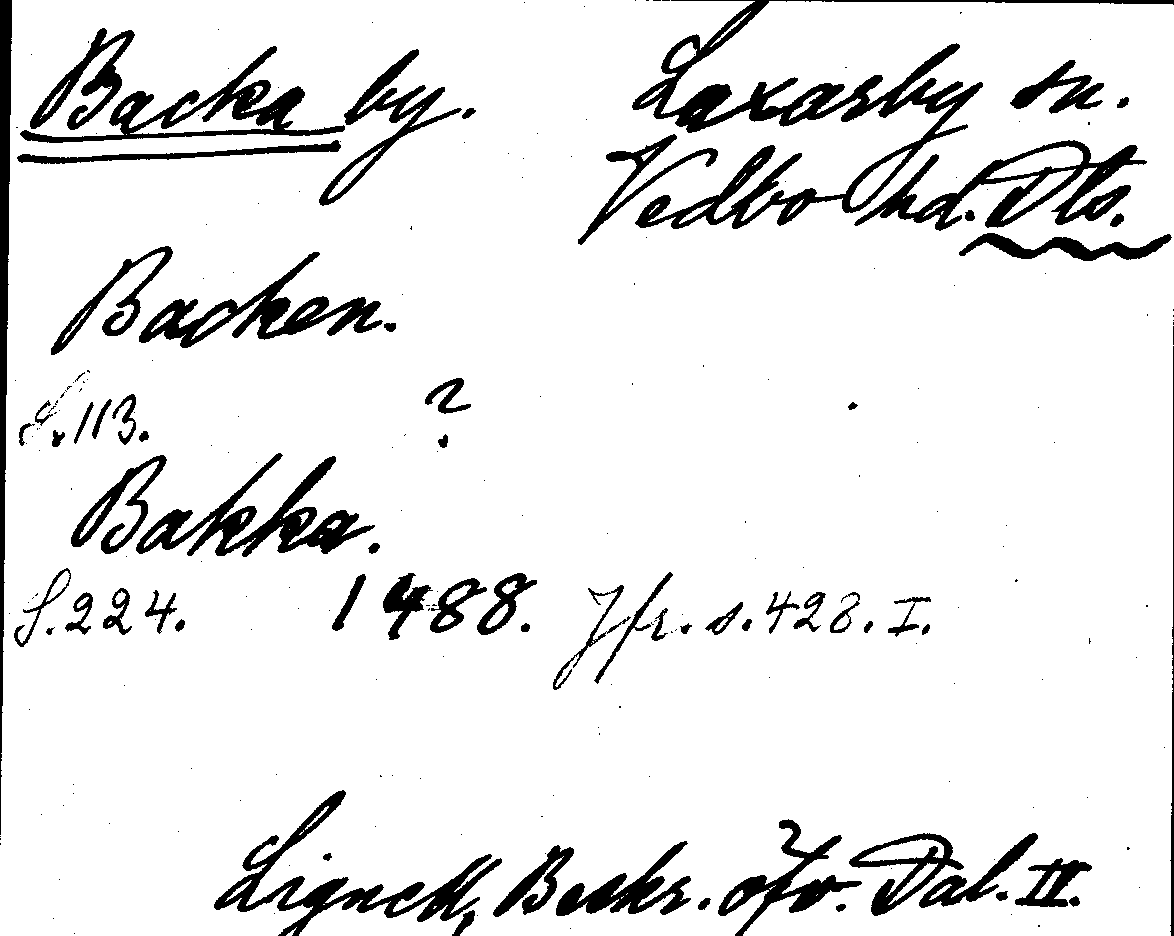 Backa by. Laxarby sn.
Vedbo hd. Dls.
Backen.
S.113. ?
Bakka.
S.224. 1488. Jfr. s.428. I.
Lignell, Beskr. öfv. Dal. II.